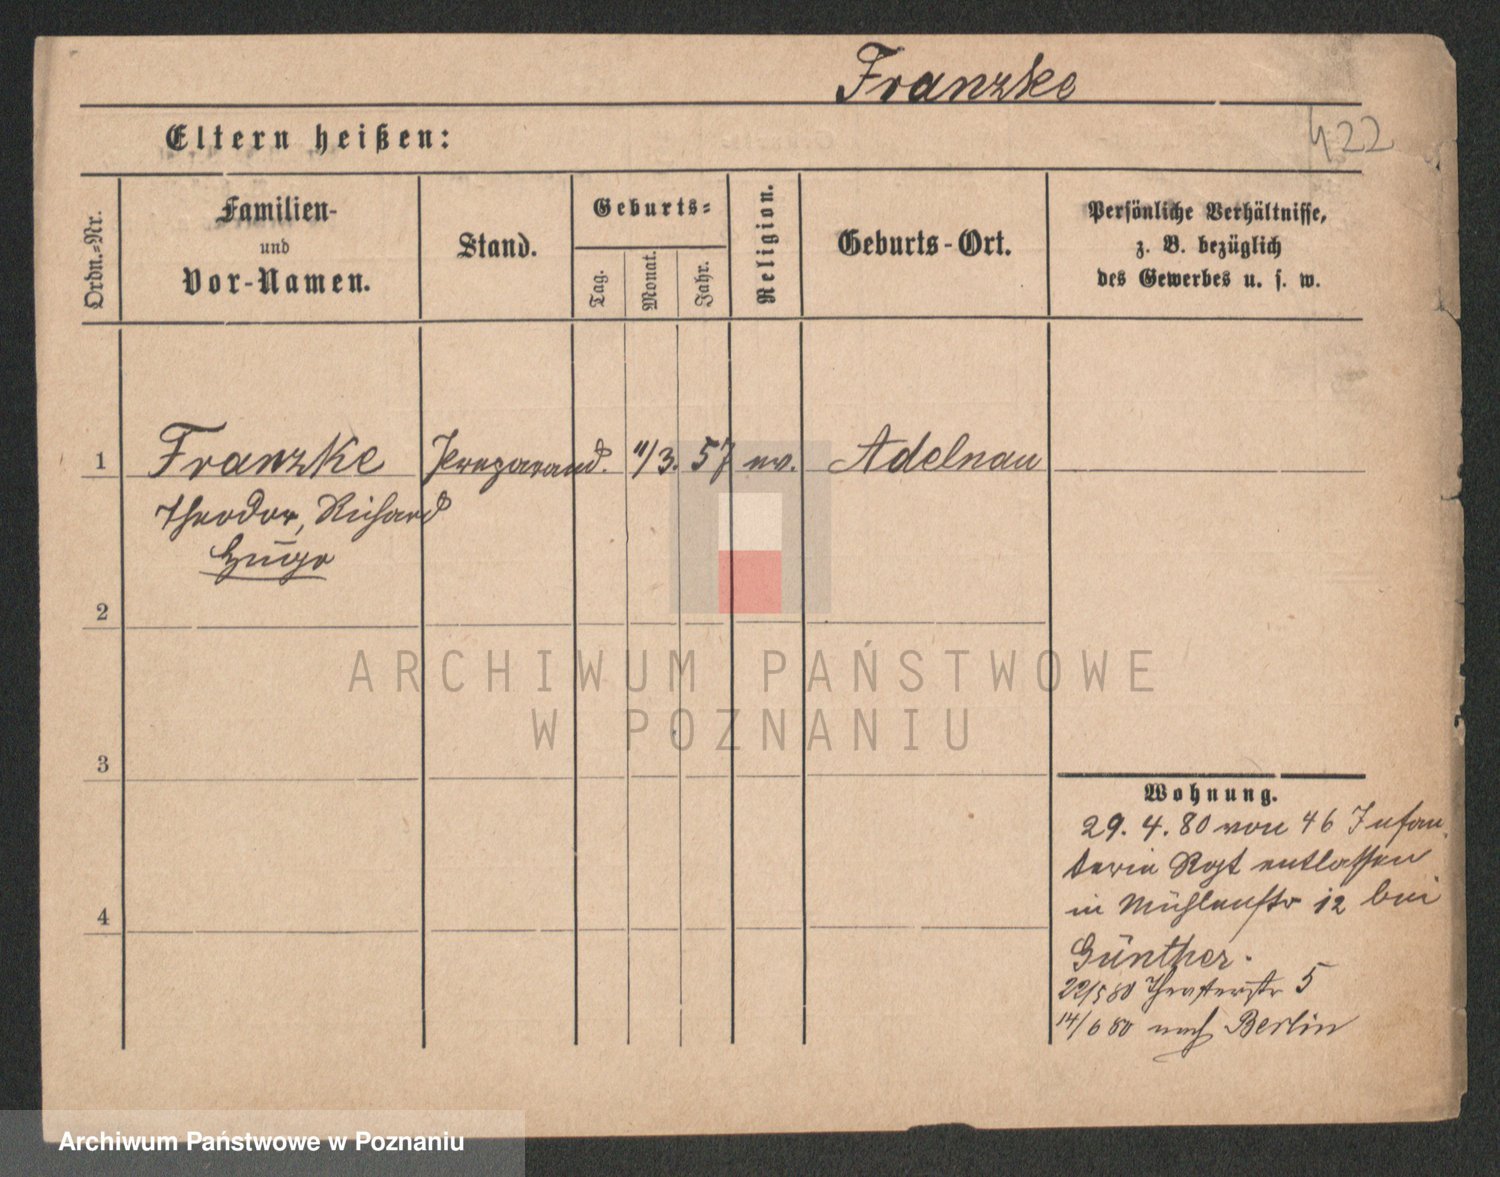 Franzke
422
Eltern heißen:
Ordn.-Nr.
Familien-
und
Vor-Namen.
Stand.
Geburts-
Tag.
Monat.
Jahr.
Religion.
Geburts-Ort.
Persönliche Verhältnisse,
z. B. bezüglich
des Gewerbes u. s. w.
1 Franzke Preparand. 11/3. 57 ev. Adelnau
Theodor, Richard
Hugo
2
3
4
Wohnung.
29. 4. 80 von 46 Infan-
terie Rgt entlassen
in Mühlenstr 12 bei
Günther.
22/5 80 Theaterstr 5
14/6 80 nach Berlin
ARCHIWUM PAŃSTWOWE
W POZNANIU
Archiwum Państwowe w Poznaniu